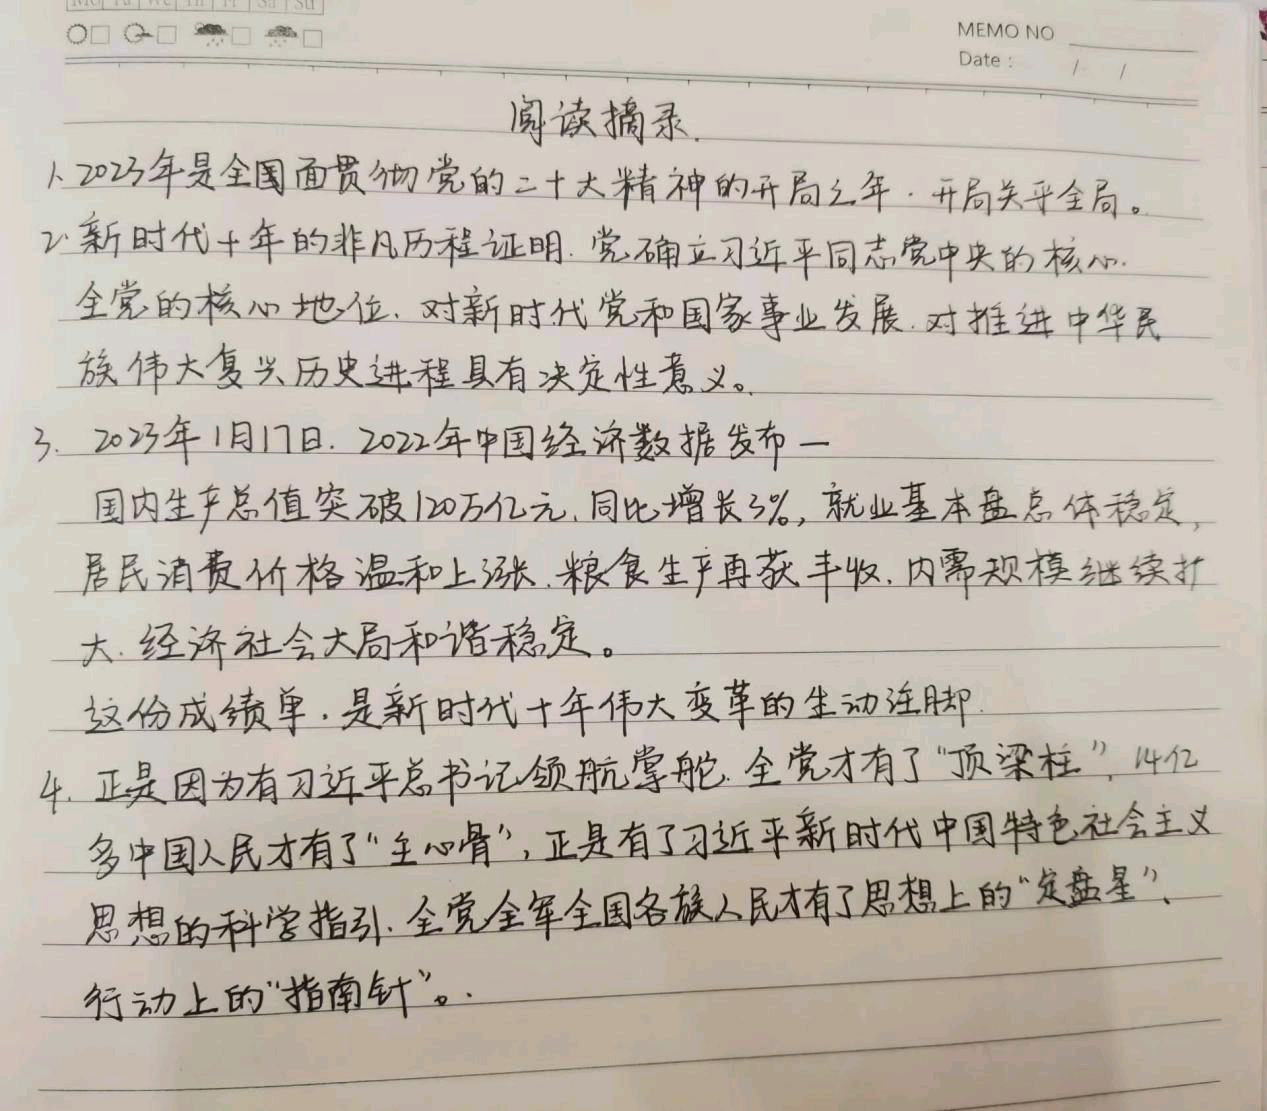 Mo Tu We Th Fr Sa Su
MEMO NO
Date : / /
阅读摘录.
1. 2023年是全国面贯彻党的二十大精神的开局之年.开局关乎全局。
2. 新时代十年的非凡历程证明.党确立习近平同志党中央的核心.
全党的核心地位.对新时代党和国家事业发展.对推进中华民
族伟大复兴历史进程具有决定性意义。
3. 2023年1月17日.2022年中国经济数据发布一
国内生产总值突破120万亿元.同比增长3%,就业基本盘总体稳定,
居民消费价格温和上涨.粮食生产再获丰收.内需规模继续扩
大.经济社会大局和谐稳定。
这份成绩单.是新时代十年伟大变革的生动注脚.
4. 正是因为有习近平总书记领航掌舵.全党才有了“顶梁柱”,14亿
多中国人民才有了“主心骨”,正是有了习近平新时代中国特色社会主义
思想的科学指引.全党全军全国各族人民才有了思想上的“定盘星”、
行动上的“指南针”。.